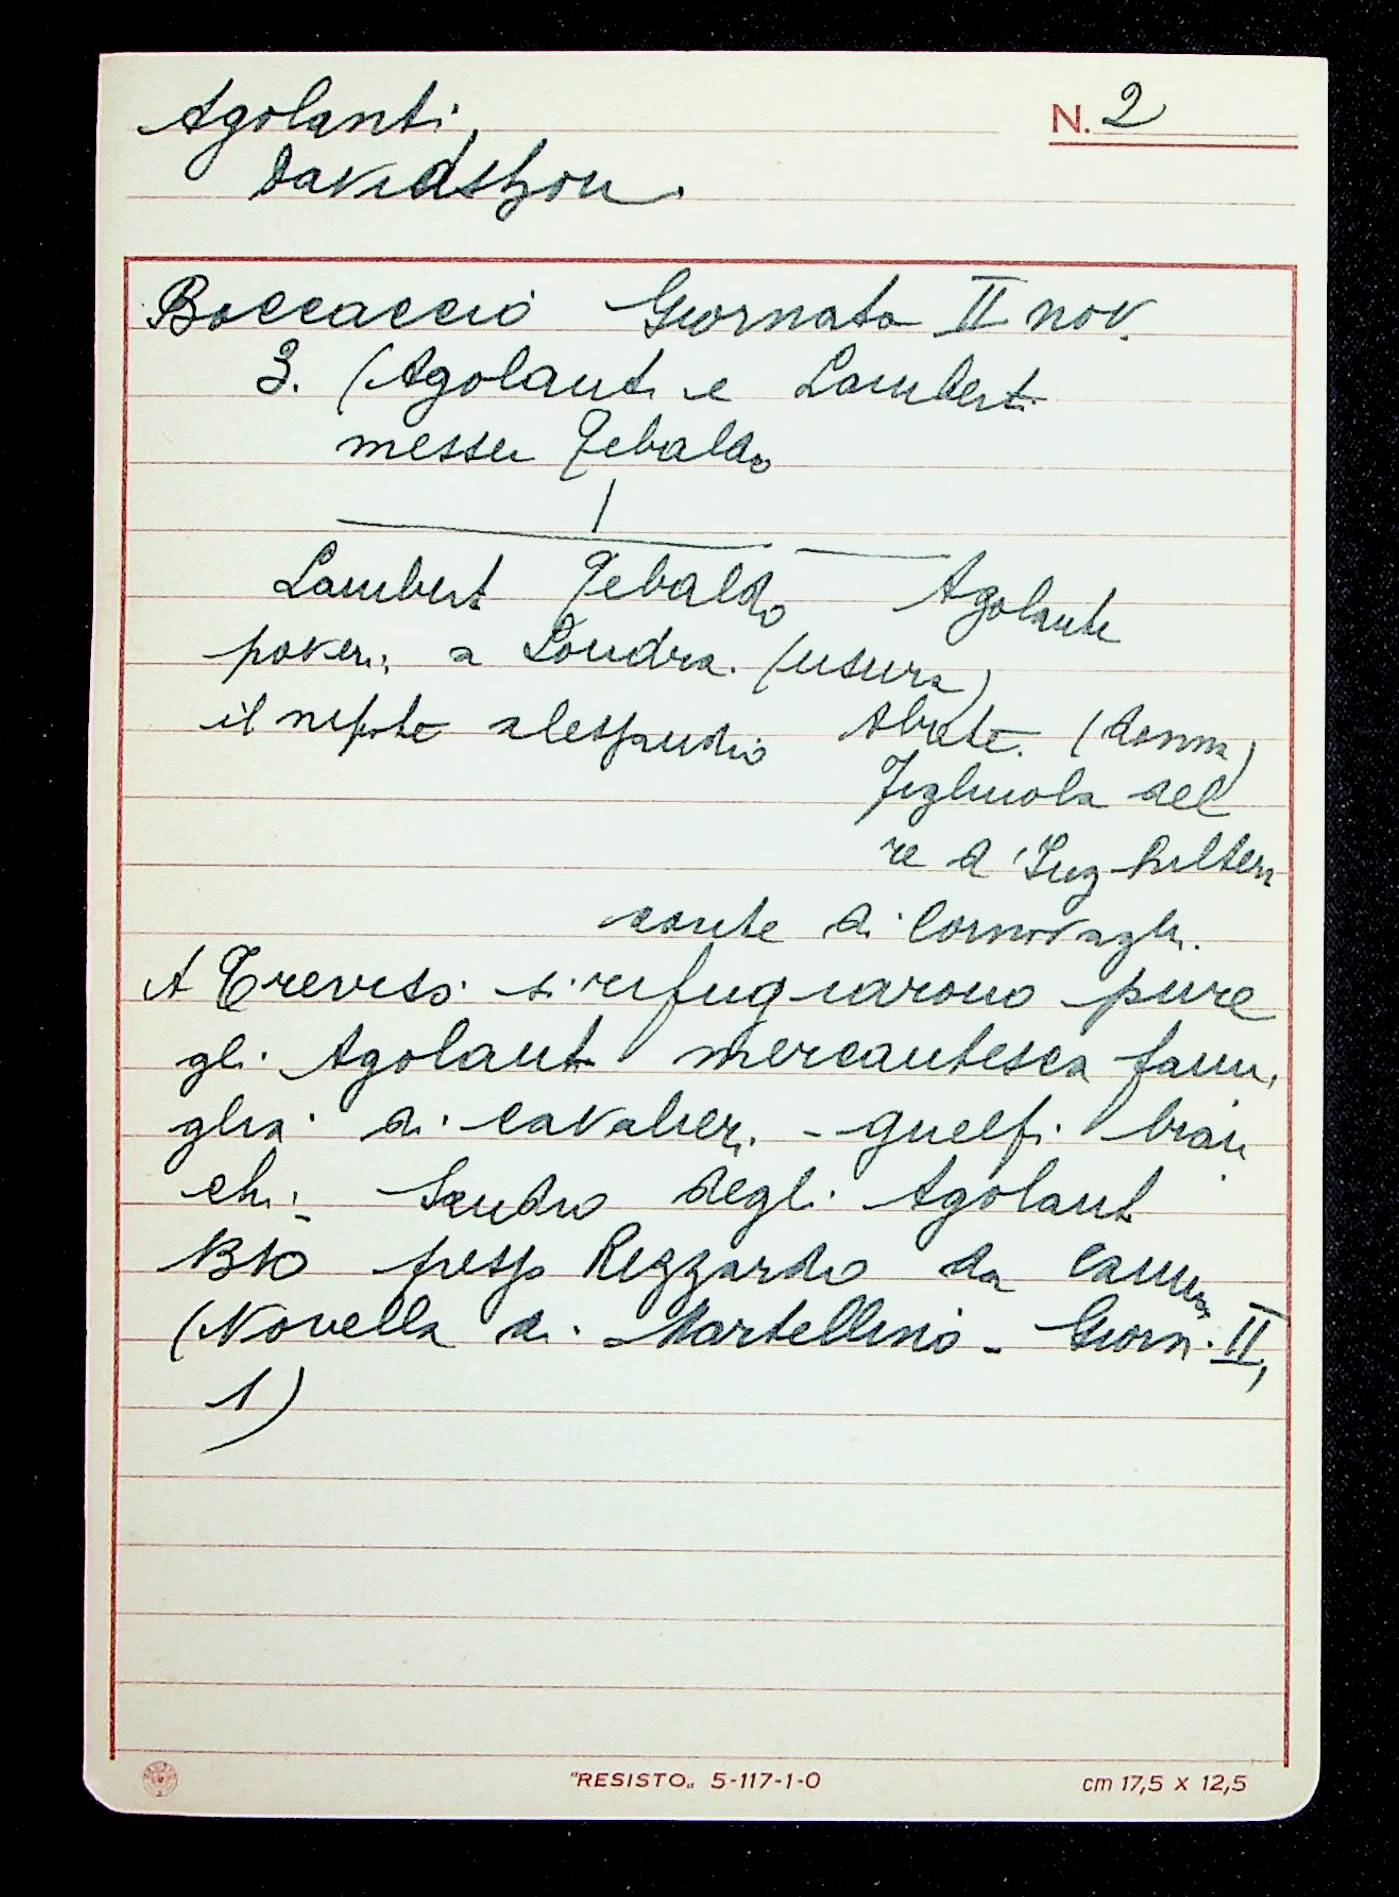 Agolanti,
N. 2
Davidshon.
Boccaccio Giornata II nov.
3. (Agolanti e Lamberti
messer Tebaldo
Lambert Tebaldo Agolante
poveri, a Londra. (usura)
il nipote Alessandro Abate. (donna)
figliuola del
re d'Inghilterr
conte di Cornovagli.
A Treviso si rifugiarono pure
gli Agolanti mercantesca fami,
glia di cavalieri - guelfi bian
chi - Sandro degli Agolanti
1310 presso Rizzardo da Camino
(Novella di Martellino - Giorn. II,
1)
"RESISTO" 5-117-1-0
cm 17,5 x 12,5